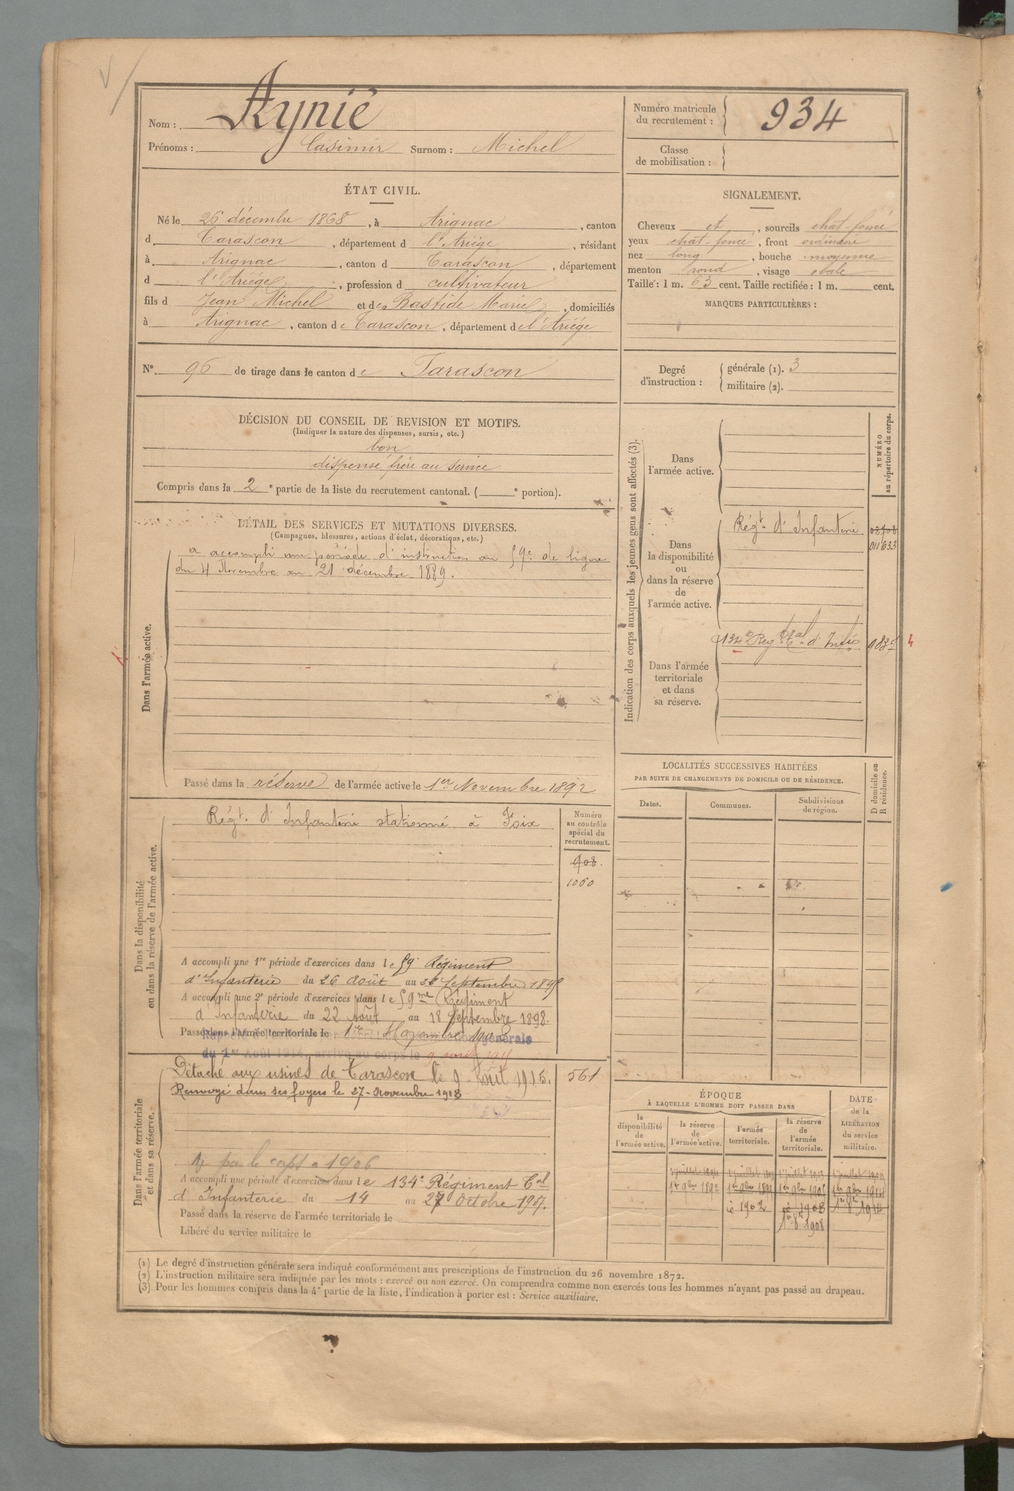 Nom : Aynié
Prénoms : Casimir Surnom : Michel
Numéro matricule
du recrutement : 934
Classe
de mobilisation :
ÉTAT CIVIL.
Né le 26 décembre 1868, à Arignac, canton
d Tarascon, département d l'Ariége, résidant
à Arignac, canton d Tarascon, département
d l'Ariége, profession d cultivateur
fils d Jean Michel et de Bastide Marie, domiciliés
à Arignac, canton de Tarascon, département de l'Ariége
SIGNALEMENT.
Cheveux et, sourcils chat-foncé
yeux chat-foncé, front ordinaire
nez long, bouche moyenne
menton rond, visage ovale
Taille : 1 m. 63 cent. Taille rectifiée : 1 m. cent.
MARQUES PARTICULIÈRES :
N° 96 de tirage dans le canton de Tarascon
Degré
d'instruction :
générale (1). 3
militaire (2).
DÉCISION DU CONSEIL DE REVISION ET MOTIFS.
(Indiquer la nature des dispenses, sursis, etc.)
bon
dispensé frère au service
Compris dans la 2e partie de la liste du recrutement cantonal. ( e portion).
DÉTAIL DES SERVICES ET MUTATIONS DIVERSES.
(Campagnes, blessures, actions d'éclat, décorations, etc.)
Dans l'armée active.
a accompli une période d'instruction au 59e de ligne
du 4 Novembre au 21 décembre 1889.
Passé dans la réserve de l'armée active le 1er Novembre 1892
Indication des corps auxquels les jeunes gens sont affectés (3).
NUMÉRO
au répertoire du corps.
Dans
l'armée active.
Dans
la disponibilité
ou
dans la réserve
de
l'armée active.
Régt d'Infanterie
011633
Dans l'armée
territoriale
et dans
sa réserve.
Dans la disponibilité
ou dans la réserve de l'armée active.
Régt. d'Infanterie stationné à Foix
Numéro
au contrôle
spécial du
recrutement.
908
1060
A accompli une 1re période d'exercices dans le 59e Régiment
d'Infanterie du 26 août au Septembre
A accompli une 2e période d'exercices dans le 59me Régiment
d'Infanterie du 22 Août au 18 Septembre 1898.
Passé dans l'armée territoriale le 1er
générale
du 1er Août
LOCALITÉS SUCCESSIVES HABITÉES
PAR SUITE DE CHANGEMENTS DE DOMICILE OU DE RÉSIDENCE.
Dates.
Communes.
Subdivisions
de région.
D domicile ou
R résidence.
Dans l'armée territoriale
et dans sa réserve.
Détaché aux usines de Tarascon le 9 1916.
561
Renvoyé dans ses foyers le 27 novembre 1918
A accompli une période d'exercices dans le 134e Régiment Tal
d'Infanterie du 14 au 27 Octobre 1907.
Passé dans la réserve de l'armée territoriale le
Libéré du service militaire le
ÉPOQUE
À LAQUELLE L'HOMME DOIT PASSER DANS
la
disponibilité
de
l'armée active.
la réserve
de
l'armée active.
l'armée
territoriale.
la réserve
de
l'armée
territoriale.
DATE
de la
LIBÉRATION
du service
militaire.
1er 9bre 1892
1902
1908
(1) Le degré d'instruction générale sera indiqué conformément aux prescriptions de l'instruction du 26 novembre 1872.
(2) L'instruction militaire sera indiquée par les mots : exercé ou non exercé. On comprendra comme non exercés tous les hommes n'ayant pas passé au drapeau.
(3) Pour les hommes compris dans la 4e partie de la liste, l'indication à porter est : Service auxiliaire.